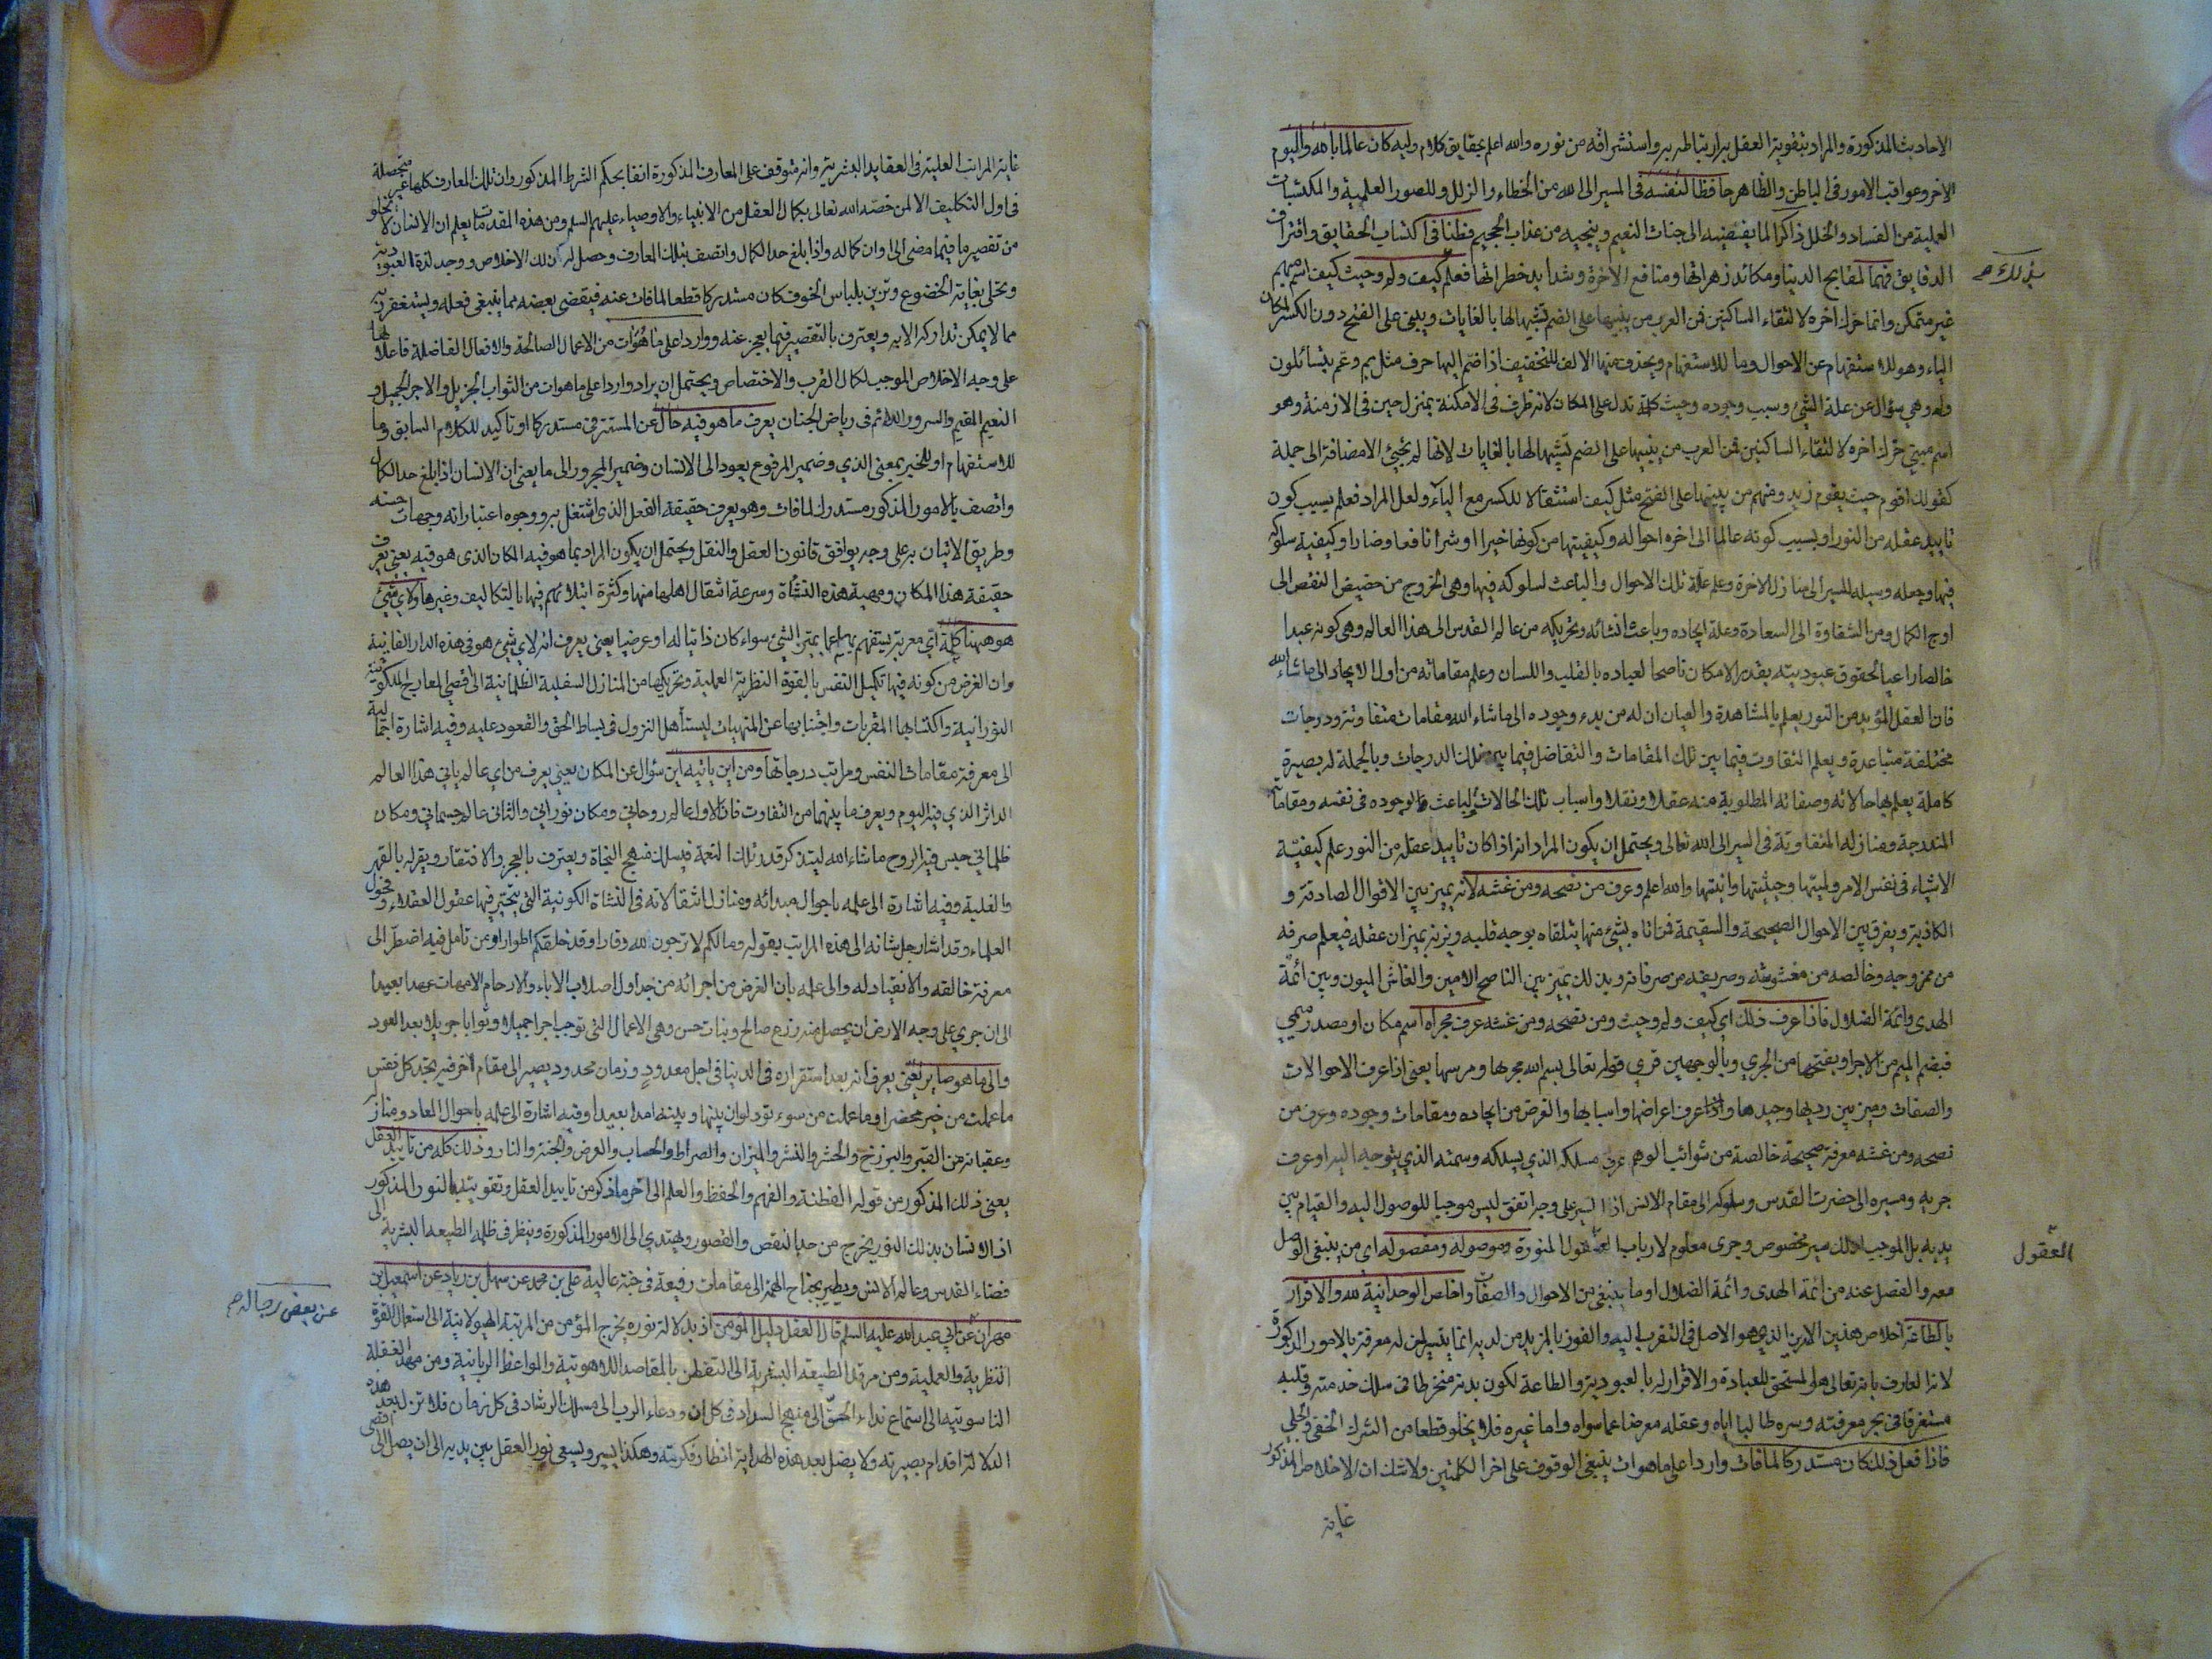 الاحاديث المذكورة والمراد بتقوية العقل به ارتباطه به واستشراقه من نوره والله اعلم بحقايق كلام وليه كان عالما بالله واليوم
الاخر وعواقب الامور في الباطن والظاهر حافظا لنفسه في المسير الى الله من الخطاء والزلل وللصور العلمية والمكتسبات
العملية من الفساد والخلل ذاكرا لما يقتضيه الى جنات النعيم وينجيه من عذاب الجحيم فطنا في اكتساب الحقايق واقتراف
الدقايق فهما لمقابح الدنيا ومكائد زهراتها ومنافع الاخرة وشدايد خطراتها فعلم كيف ولم وحيث كيف اسم مبهم
غير متمكن وانما حرك اخره لالتقاء الساكنين فمن العرب من يبنيها على الضم تشبيها لها بالغايات ويبنى على الفتح دون الكسر لمكان
الياء وهو للاستفهام عن الاحوال وما للاستفهام ويحذف منها الالف للتخفيف اذا ضم اليها حرف مثل بم وعم يتسائلون
ولم وهي سؤال عن علة الشئ وسبب وجوده وحيث كلمة تدل على المكان لانه ظرف في الامكنة بمنزلة حين في الازمنة وهو
اسم مبني حرك اخره لالتقاء الساكنين فمن العرب من يبنيها على الضم تشبيها لها بالغايات لانها لم يجئ الا مضافة الى جملة
كقولك اقوم حيث يقوم زيد ومنهم من يبنيها على الفتح مثل كيف استثقالا للكسر مع الياء ولعل المراد فعلم بسبب كون
تاييد عقله من النور او بسبب كونه عالما الى اخره احواله وكيفيتها من كونها خيرا او شرا نافعا وضارا وكيفية سلوكه
فيها وجعله وسيله للمسير الى منازل الاخرة وعلم علة تلك الاحوال والباعث لسلوكه فيها وهي الخروج من حضيض النقص الى
اوج الكمال ومن الشقاوة الى السعادة وعلة ايجاده وباعث انشائه وتحريكه من عالم القدس الى هذا العالم وهي كونه عبدا
خالصا راعيا لحقوق عبوديته بقدر الامكان ناصحا لعباده بالقلب واللسان وعلم مقاماته من اول الايجاد الى ما شاء الله
فان العقل المؤيد من النور يعلم بالمشاهدة والعيان ان له من بدء وجوده الى ما شاء الله مقامات متفاوتة ودرجات
مختلفة متباعدة ويعلم التفاوت فيما بين تلك المقامات والتفاضل فيما بين تلك الدرجات وبالجملة له بصيرة
كاملة يعلم بها حالاته وصفاته المطلوبة منه عقلا ونقلا واسباب تلك الحالات والباعث لوجوده في نفسه ومقاماته
المتدرجة ومنازله المتفاوتة في السير الى الله تعالى ويحتمل ان يكون المراد انه اذا كان تاييد عقله من النور علم كيفية
الاشياء في نفس الامر ولميتها وحيثيتها وانيتها والله اعلم وعرف من نصحه ومن غشه لانه يميز بين الاقوال الصادقة و
الكاذبة ويفرق بين الاحوال الصحيحة والسقيمة فمن اتاه بشئ منها يتلقاه بوجه قلبه ويزنه بميزان عقله فيعلم صرفه
من ممزوجه وخالصه من مغشوشه وصريفه من صرفانه وبذلك يميز بين الناصح الامين والغاش الميون وبين ائمة
الهدى وائمة الضلال فاذا عرف ذلك اي كيف ولم وحيث ومن نصحه ومن غشه عرف مجراه اسم مكان او مصدر ميمي
فبضم الميم من الاجراء وبفتحها من الجري وبالوجهين قرئ قوله تعالى بسم الله مجريها ومرسيها يعني اذا عرف الاحوالات
والصفات وميز بين رديها وجيدها واذا عرف اغراضها واسبابها والغرض من ايجاده ومقامات وجوده وعرف من
نصحه ومن غشه معرفة صحيحة خالصة من شوائب الوهم عرف مسلكه الذي يسلكه وسمته الذي يتوجه اليه او عرف
جريه ومسيره الى حضرت القدس وسلوكه الى مقام الانس اذ السير على وجه اتفق ليس موجبا للوصول اليه والقيام بين
يديه بل الموجب لذلك سير مخصوص وجرى معلوم لارباب العقول المنورة وموصوله ومفصوله اي من ينبغي الوصل
معه والفصل عنه من ائمة الهدى وائمة الضلال او ما ينبغي من الاحوال والصفات واخلص الوحدانية لله والاقرار
بالطاعة اخلاص هذين الامرين الذي هو الاصل في التقرب اليه والفوز بالمزيد من لديه انما يتيسر لمن له معرفة بالامور المذكورة
لان العارف بانه تعالى هو المستحق للعبادة والاقرار له بالعبودية والطاعة لكون بدنه منخرطا في سلك خدمته وقلبه
مستغرقا في بحر معرفته وسره طالبا اياه وعقله معرضا عما سواه واما غيره فلا يخلو قطعا من الشرك الخفي والجلي
فاذا فعل ذلك كان مستدركا لما فات وواردا على ما هو ات ينبغي الوقوف على اخر الكلمتين ولا شك ان الاخلاص المذكور
غاية
العقول
غاية المراتب العلية في العقايد البشرية وانه متوقف على المعارف المذكورة انفا بحكم الشرط المذكور وان تلك المعارف كلها غير متحصلة
في اول التكليف الا لمن خصه الله تعالى بكمال العقل من الانبياء والاوصياء عليهم السلم ومن هذه المقدمات يعلم ان الانسان لا يخلو
من تقصير ما فيما مضى الى اوان كماله واذا بلغ حد الكمال واتصف بتلك المعارف وحصل له ذلك الاخلاص ووجد لذة العبودية
وتحلى بغاية الخضوع وتزين بلباس الخوف كان مستدركا قطعا لما فات عنه فيقضي بعضه مما ينبغي فعله ويستغفر ربه
مما لا يمكن تداركه الا به ويعترف بالتقصير فيما يعجز عنه وواردا على ما هو ات من الاعمال الصالحة والافعال الفاضلة فاعلا لها
على وجه الاخلاص الموجب لكمال القرب والاختصاص ويحتمل ان يراد واردا على ما هو ات من الثواب الجزيل والاجر الجميل و
النعيم المقيم والسرور الدائم في رياض الجنان يعرف ما هو فيه حال عن المستتر في مستدركا او تاكيد للكلام السابق وما
للاستفهام او للخبر بمعنى الذي وضمير المرفوع يعود الى الانسان وضمير المجرور الى ما يعني ان الانسان اذا بلغ حد الكمال
واتصف بالامور المذكور مستدرك لما فات وهو يعرف حقيقة الفعل الذي اشتغل به ووجوه اعتباراته وجهات حسنه
وطريق الاتيان به على وجه يوافق قانون العقل والنقل ويحتمل ان يكون المراد بما هو فيه المكان الذي هو فيه يعني يعرف
حقيقة هذا المكان ومهية هذه النشأة وسرعة انتقال اهلها منها وكثرة ابتلائهم فيها بالتكاليف وغيرها ولاي شئ
هو ههنا كلمة اي معربة يستفهم بها عما يميز الشئ سواء كان ذاتيا له او عرضيا يعني يعرف انه لاي شئ هو في هذه الدار الفانية
وان الغرض من كونه فيها تكميل النفس بالقوة النظرية العملية وتحريكها من المنازل السفلية الظلمانية الى اقصى المعارج الملكوتية
النورانية واكتسابها المقربات واجتنابها عن المنهيات ليستأهل النزول في بساط الحق والقعود عليه وفيه اشارة اجمالية
الى معرفة مقامات النفس ومراتب درجاتها ومن اين ياتيه اين سؤال عن المكان يعني يعرف من اي عالم ياتي هذا العالم
الداثر الذي فيه اليوم ويعرف ما بينهما من التفاوت فان الاول عالم روحاني ومكان نوراني والثاني عالم جسماني ومكان
ظلماني حبس فيه الروح ما شاء الله ليتذكر قدر تلك النعمة فيسلك منهج النجاة ويعترف بالعجز والافتقار ويقر له بالقهر
والغلبة وفيه اشارة الى علمه باحوال مبدائه ومنازل انتقالاته في النشاة الكونية التي يتحير فيها عقول العقلاء وفحول
العلماء وقد اشار جل شانه الى هذه المراتب بقوله وما لكم لا ترجون لله وقارا وقد خلقكم اطوارا ومن تامل فيه اضطر الى
معرفة خالقه والانقياد له والى علمه بان الغرض من اجرائه من جداول اصلاب الاباء والارحام الامهات عهدا بعيدا
الى ان جرى على وجه الارض ان يحصل منه زرع صالح ونبات حسن وهي الاعمال التي توجب اجرا جميلا وثوابا جزيلا بعد العود
والى ما هو صاير يعني يعرف انه بعد استقراره في الدنيا في اجل معدود وزمان محدود يصير الى مقام اخر فيه يجد كل نفس
ما عملت من خير محضرا وما عملت من سوء تود لو ان بينها وبينه امدا بعيدا وفيه اشارة الى علمه باحوال المعاد ومنازله
وعقباته من القبر والبرزخ والحشر والنشر والميزان والصراط والحساب والعرض والجنة والنار وذلك كله من تاييد العقل
يعني ذلك المذكور من قوله الفطنة والفهم والحفظ والعلم الى اخر ما ذكر من تاييد العقل وتقويته بالنور المذكور
اذ الانسان بذلك النور يخرج من حد النقص والقصور ويهتدي الى الامور المذكورة وينظر في ظلمة الطبيعة البشرية الى
فضاء القدس وعالم الانس ويطير بجناح الهمة الى مقامات رفيعة في جنة عالية علي بن محمد عن سهل بن زياد عن اسمعيل بن
مهران عن ابي عبد الله عليه السلم قال العقل دليل المؤمن اذ بدلالة نوره يخرج المؤمن من المرتبة الهيولانية الى استعمال القوة
النظرية والعملية ومن مرقد الطبيعة البشرية الى التفطن بالمقاصد اللاهوتية والمواعظ الربانية ومن مهد الغفلة
الناسوتية الى استماع نداء الحق الى منهج السداد في كل ان ودعاء الرب الى مسلك الرشاد في كل زمان فلا تزل بعد هذه
الدلالة اقدام بصيرته ولا يضل بعد هذه الهداية انظار فكرته وهكذا يسير ويسعى نور العقل بين يديه الى ان يصل الى اقصى
عن بعض رجاله صح